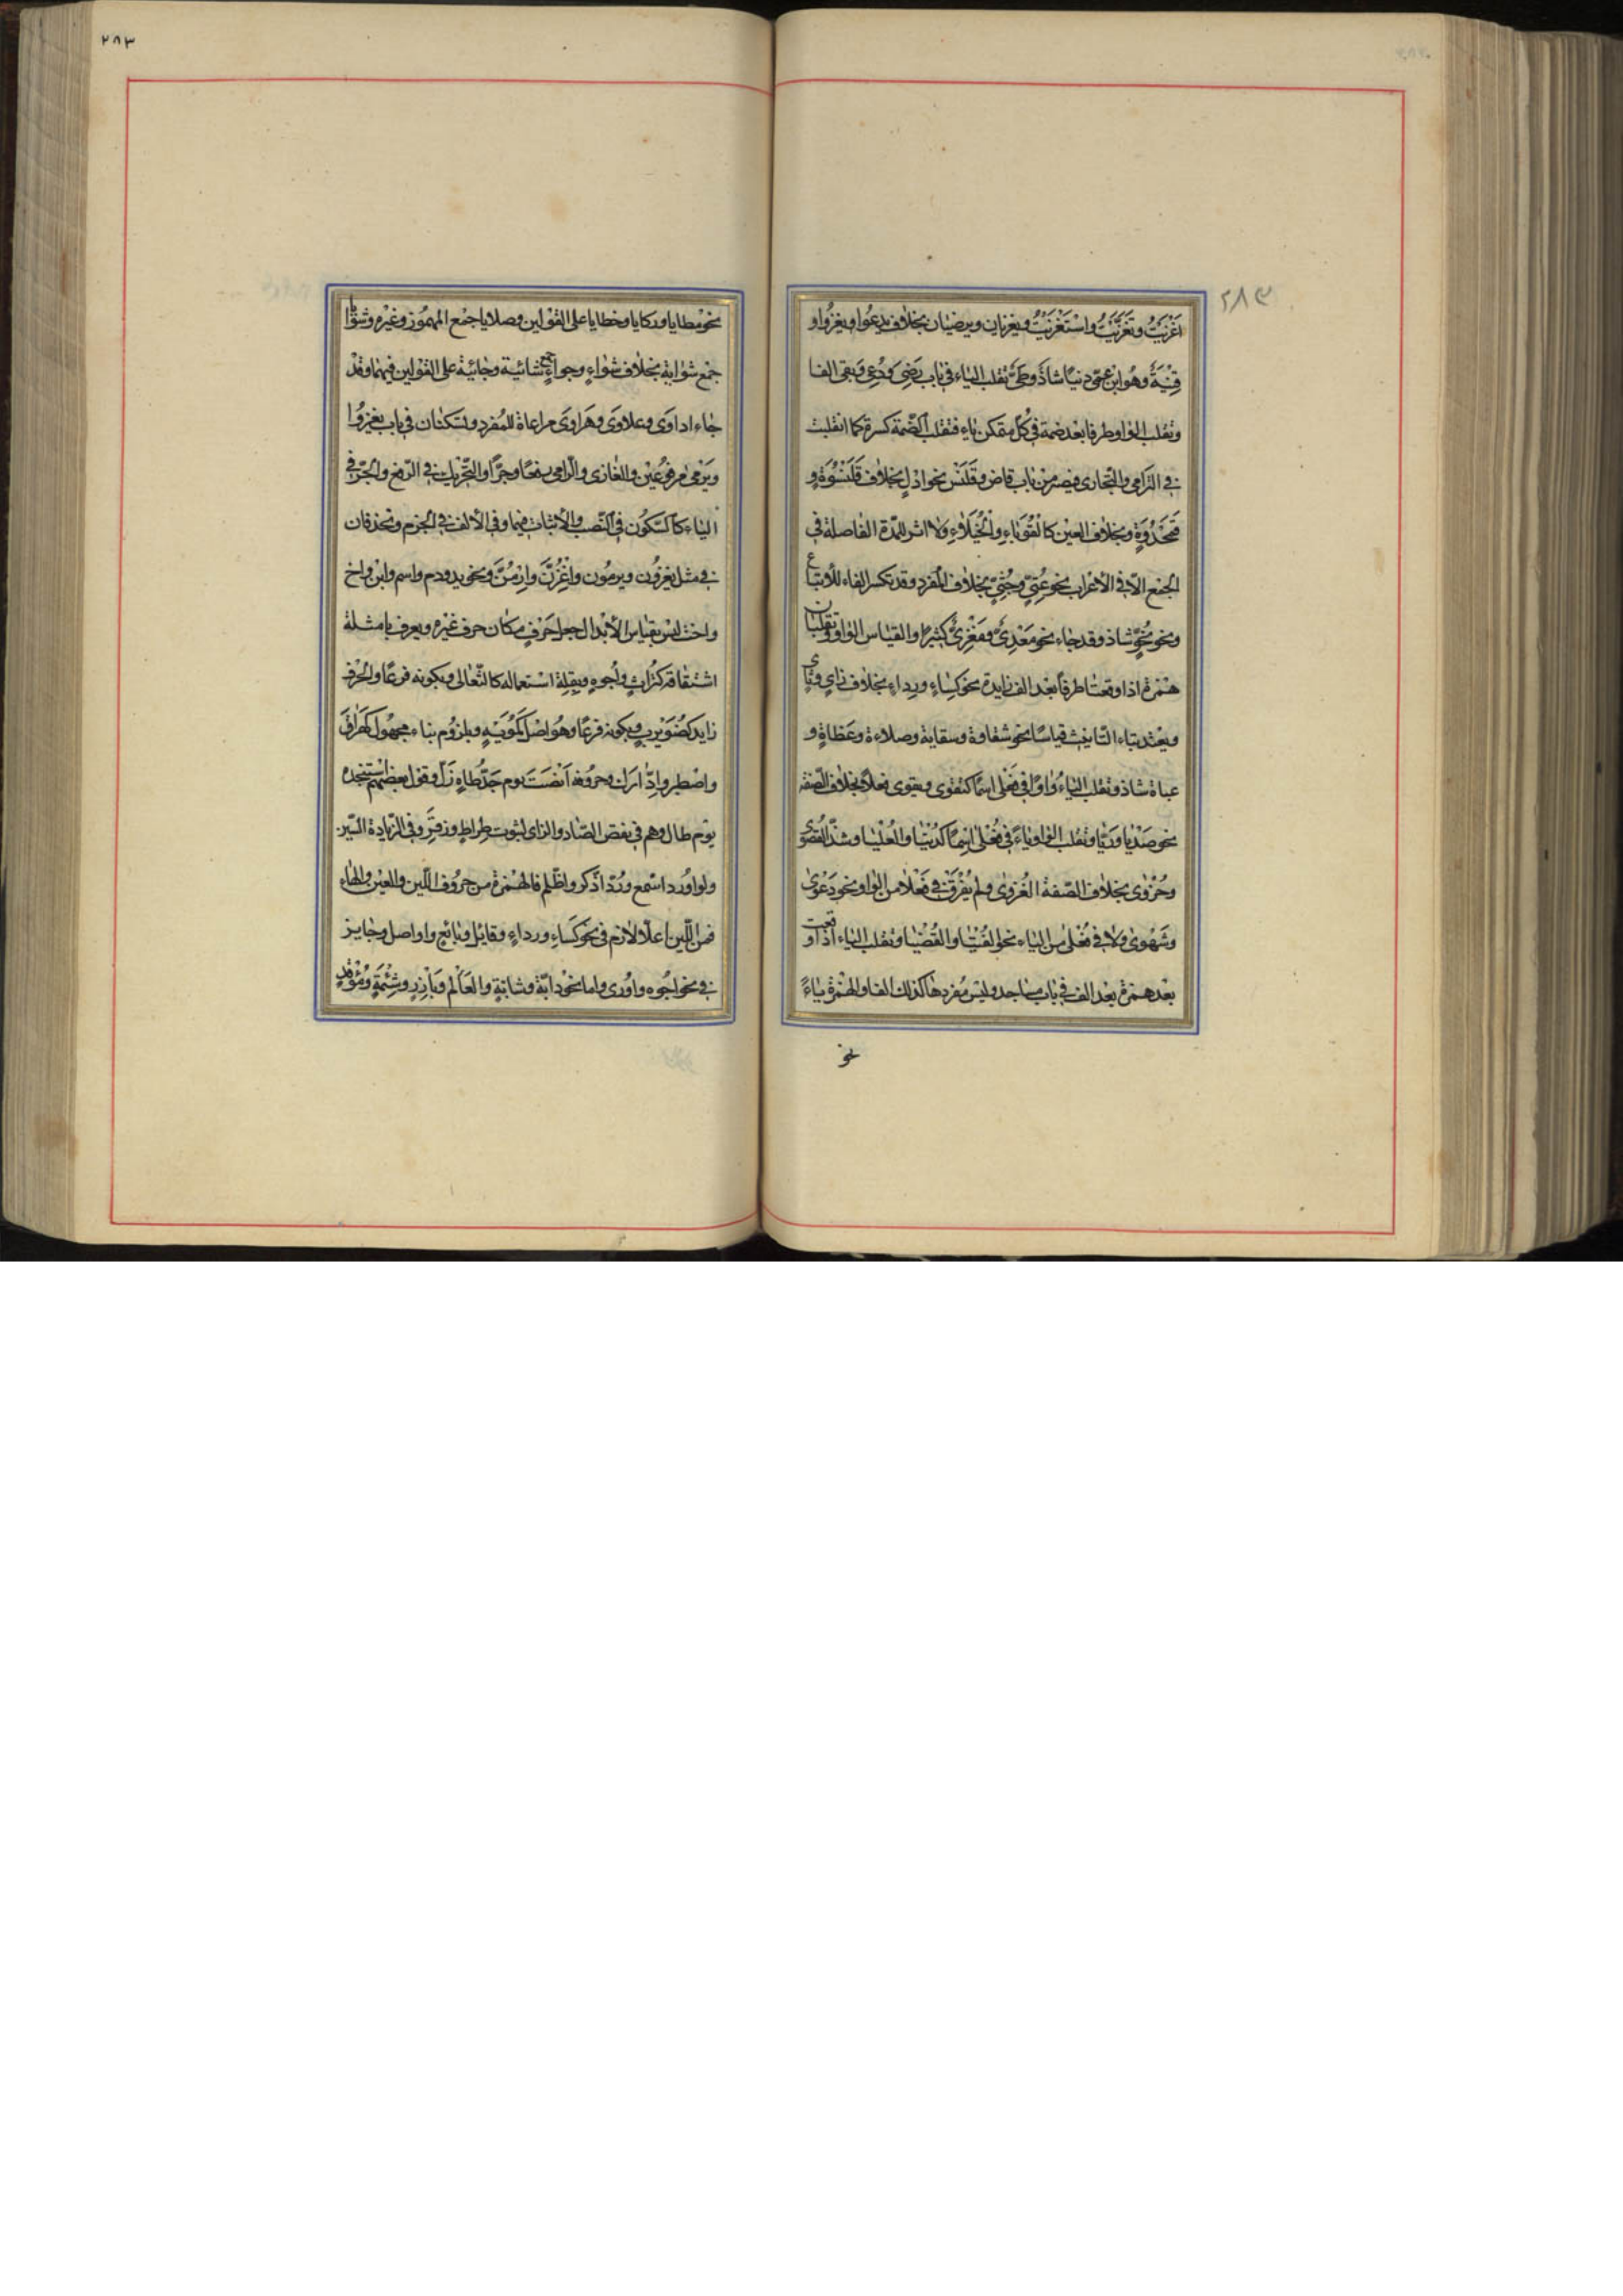 ٢٨٣
اغزيت وتغزّيت واستغزيت ويغزيان ويرضيان بخلاف يدعو او يغزو او
قنية وهو ابن عمّى دنيا شاذّ وطيّ تقلب الياء فى باب رضى ودعى وبقى الفا
وتقلب الواو طرفا بعد ضمة فى كلّ متمكن ياء فتقلب الضّمة كسرة كما انقلبت
فى الترامى والتجارى فيصير من باب قاض وقلنس نحو ادلٍ بخلاف قلنسوة و
قمحدوة وبخلاف العين كالقوباء والخيلاء ولا اثر للمدّة الفاصلة فى
الجمع الّا فى الاعراب نحو عتىّ وجثىّ بخلاف المفرد وقد تكسر الفاء للاتباع
ونحو نحوّ شاذ وقد جاء نحو معدىّ ومغزىّ كثيرا والقياس الواو وتقلبان
همزة اذا وقعتا طرفا بعد الف زايدة نحو كساءٍ ورداءٍ بخلاف زاى وثاى
ويعتد بتاء التّانيث قياسا نحو شقاوة وسقاية وصلاءة وعظاة و
عباءة شاذ وتقلب الياء واوًا فى فعلى اسمًا كتقوى وبقوى بخلاف الصّفة
نحو صديا وريّا وتقلب الواو ياءً فى فُعلى اسمًا كدنيا والعليا وشذّ القصوى
وحزوى بخلاف الصّفة الغزوى ولم يفرق فى فعلا من الواو نحو دعوى
وشهوى ولا فى فُعلى من الياء نحو الفتيا والقضيا وتقلب الياء اذا وقعت
بعد همزة بعد الف فى باب مساجد وليس مفردها كذلك الفا والهمزة ياءً
نحو
٢٨٣
نحو مطايا وركايا وخطايا على القولين وصلايا جمع المهموز وغيره وشوايا
جمع شواية بخلاف شواءٍ وجواءٍ جمع شائية وجائية على القولين فيهما وقد
جاء اداوى وعلاوى وهراوى مراعاة للمفرد وتسكنان فى باب يغزوا
ويرمى مرفوعين والغازى والرامى رفعًا وجرًّا والتحريك فى الرّفع والجرّ فى
الياء كالسّكون فى النّصب والاثبات فيهما وفى الالف فى الجزم وتحذفان
فى مثل يغزون ويرمون واغزنّ وارمنّ ونحو يد ودم واسم وابن واخ
واخت ليس بقياس الابدال جعل حرف مكان حرف غيره ويعرف بامثلة
اشتقاقه كتراث واجوه وبقلة استعماله كالثّعالى وبكونه فرعًا والحرف
زايد كضويرب وبكونه فرعًا وهو اصل كمويه وبلزوم بناء مجهول كهراق
واصطبر وادّارك وحروفه انصت يوم جدّ طاه زلّ وقول بعضهم استنجده
يوم طال وهم فى نقص الصّاد والزاى لثبوت صراط وزقر وفى الزيادة السّين
ولو اورد اسّمع ورد اذّكر واظّلم فالهمزة من حروف اللّين والعين والهاء
فمن اللّين اعلال لازم فى نحو كساءٍ ورداءٍ وقايل وبائع واواصل وجايز
فى نحو اجوه واورى واما نحو دابّة وشابّة والعألم وبأز وشئمة ومؤقد